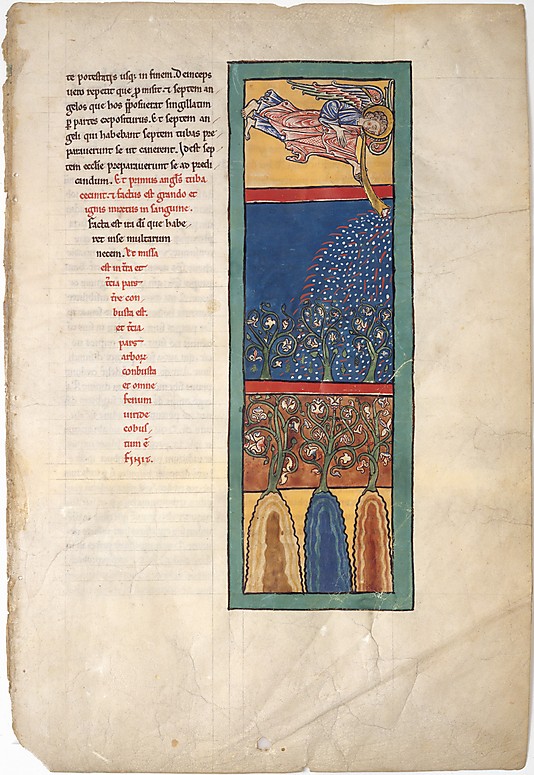 te potestatis usq; in finem. Deinceps
uero repetit que p misit. & septem an
gelos que hos pposuerat singillatim
p partes expositurus. Et septem an
geli qui habebant septem tubas pre
parauerunt se ut canerent. Idest sep
tem ecclie preparauerunt se ad predi
candum. Et primus angls tuba
cecinit. & factus est grando et
ignis mixtus in sanguine.
Facta est ira di que habe
ret in se multarum
necem. Et missa
est in tra et
tcia pars
tre con
busta est.
et tcia
pars
arbor
conbusta
et omne
fenum
uiride
cobus
tum e
FINIT.